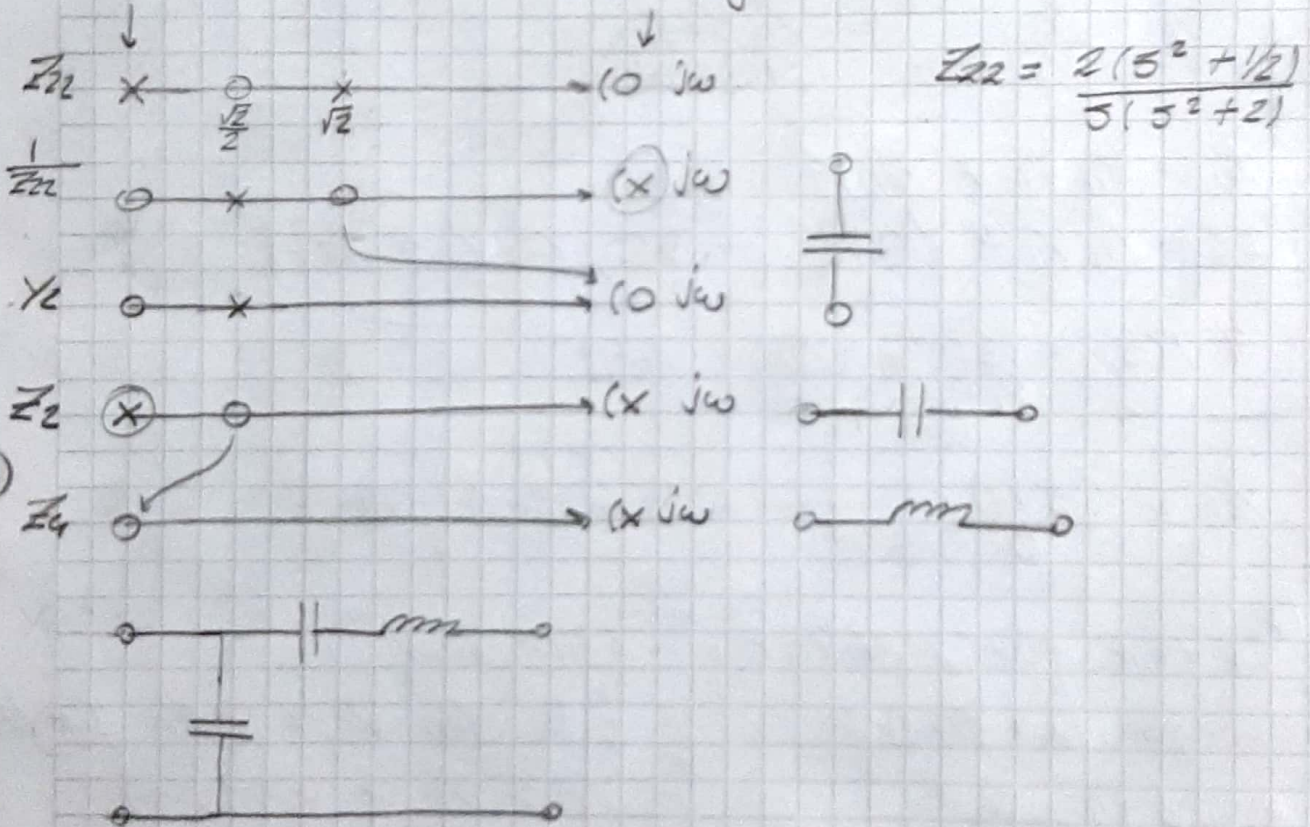 Z22 × O × (O jω
√2/2 √2
Z22 = 2(S² + 1/2) / S(S² + 2)
1/Z22 O × O (× jω
Y2 O × (O jω
Z2 × O (× jω
Z4 O (× jω